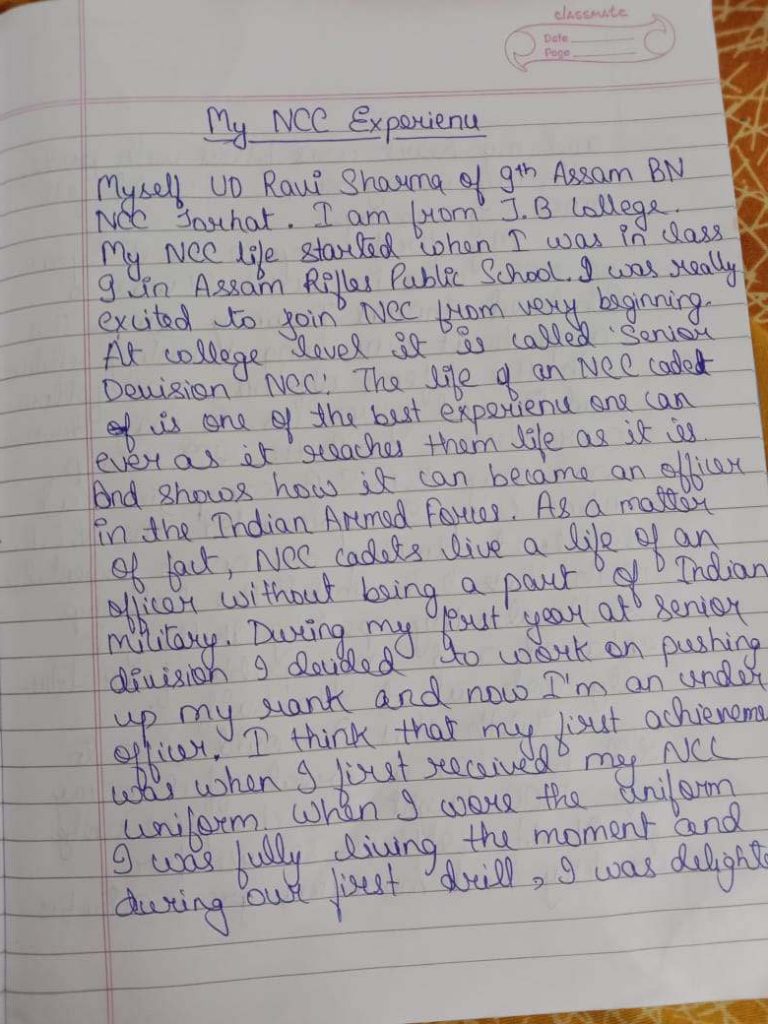 classmate
Date
Page
My NCC Experienu
Myself UO Ravi Sharma of 9th Assam BN
NCC Jorhat. I am from J.B College.
My NCC life started when I was in class
9 in Assam Rifles Public School. I was really
excited to join NCC from very beginning.
At college level it is called 'Senior
Devision NCC'. The life of an NCC cadet
of is one of the best experienu one can
ever as it reaches them life as it is
and shows how it can became an officer
in the Indian Armed Forces. As a matter
of fact, NCC cadets live a life of an
officer without being a part of Indian
military. During my first year at senior
division I decided to work on pushing
up my rank and now I'm an under
officer. I think that my first achieveme
was when I first received my NCC
uniform. When I wore the uniform
I was fully living the moment and
during our first drill, I was delighte